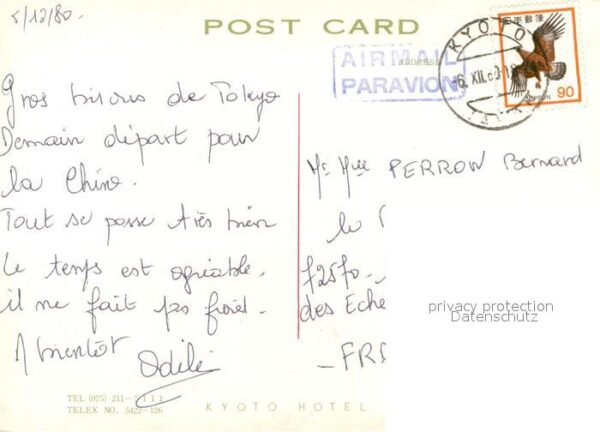 5/12/80.
POST CARD
ADDRESS
AIR MAIL
PAR AVION
KYOTO
6. XII.80-18
日本郵便
NIPPON
90
Gros bisous de Tokyo
Demain départ pour
la Chine.
Tout se passe très bien
Le temps est agréable.
il ne fait pas froid.
A bientôt
Odile
Mr Mme PERRON Bernard
le
72570
des Eche
- FR
privacy protection
Datenschutz
TEL (075) 211-5111
TELEX NO. 5422-126
KYOTO HOTEL